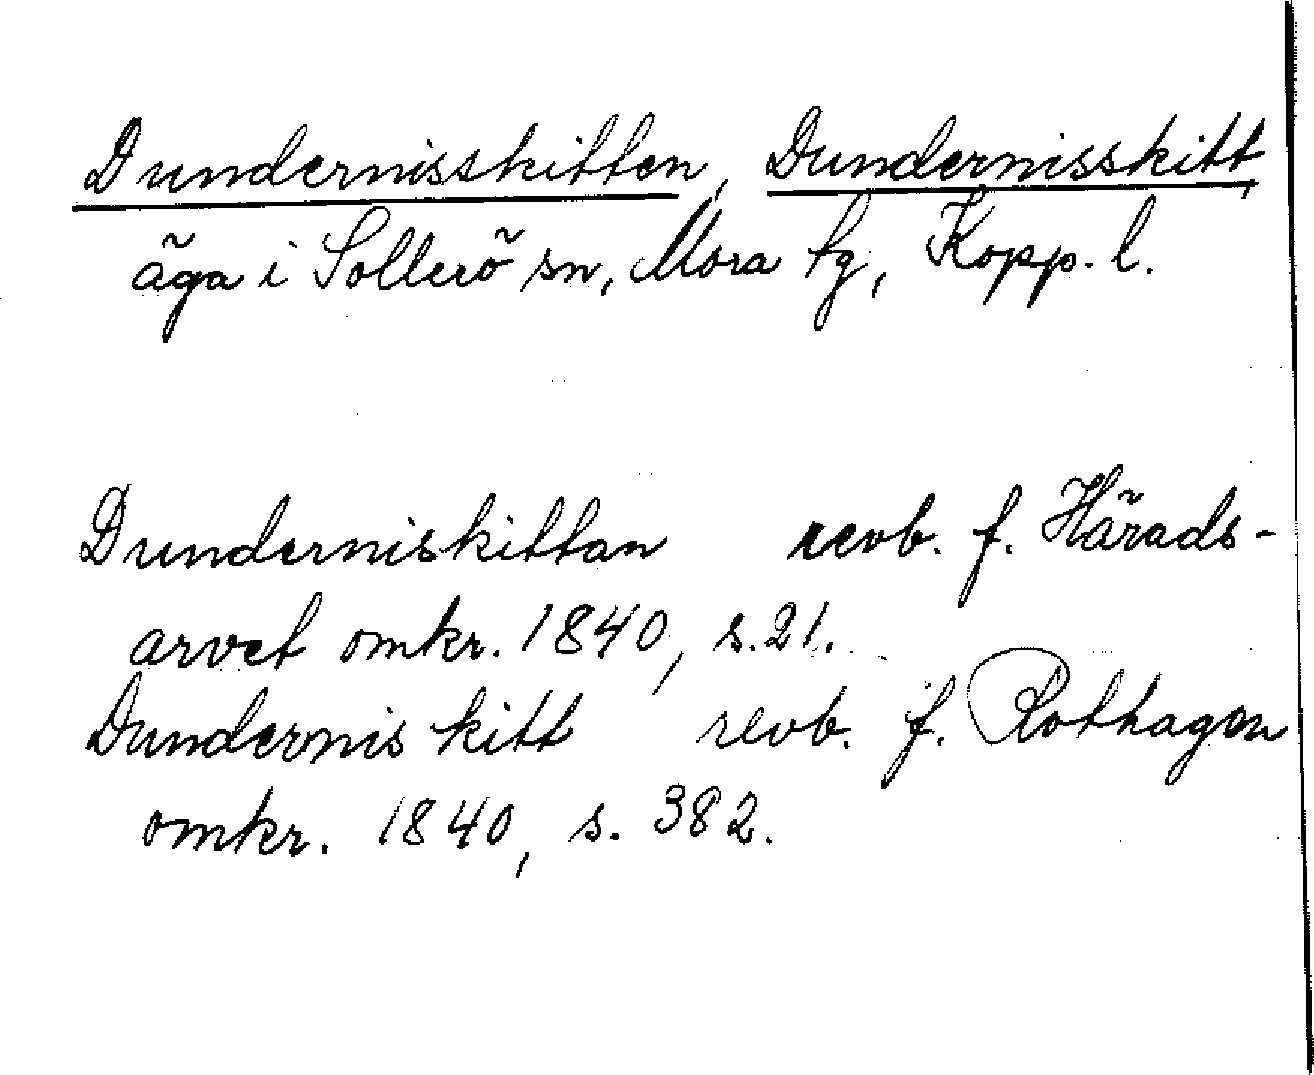 Dundernisskitten, Dundernisskitt,
äga i Sollerö sn, Mora tg, Kopp. l.
Dunderniskittan revb. f. Härads-
arvet omkr. 1840, s. 21.
Dundernis kitt revb. f. Rothagen
omkr. 1840, s. 382.